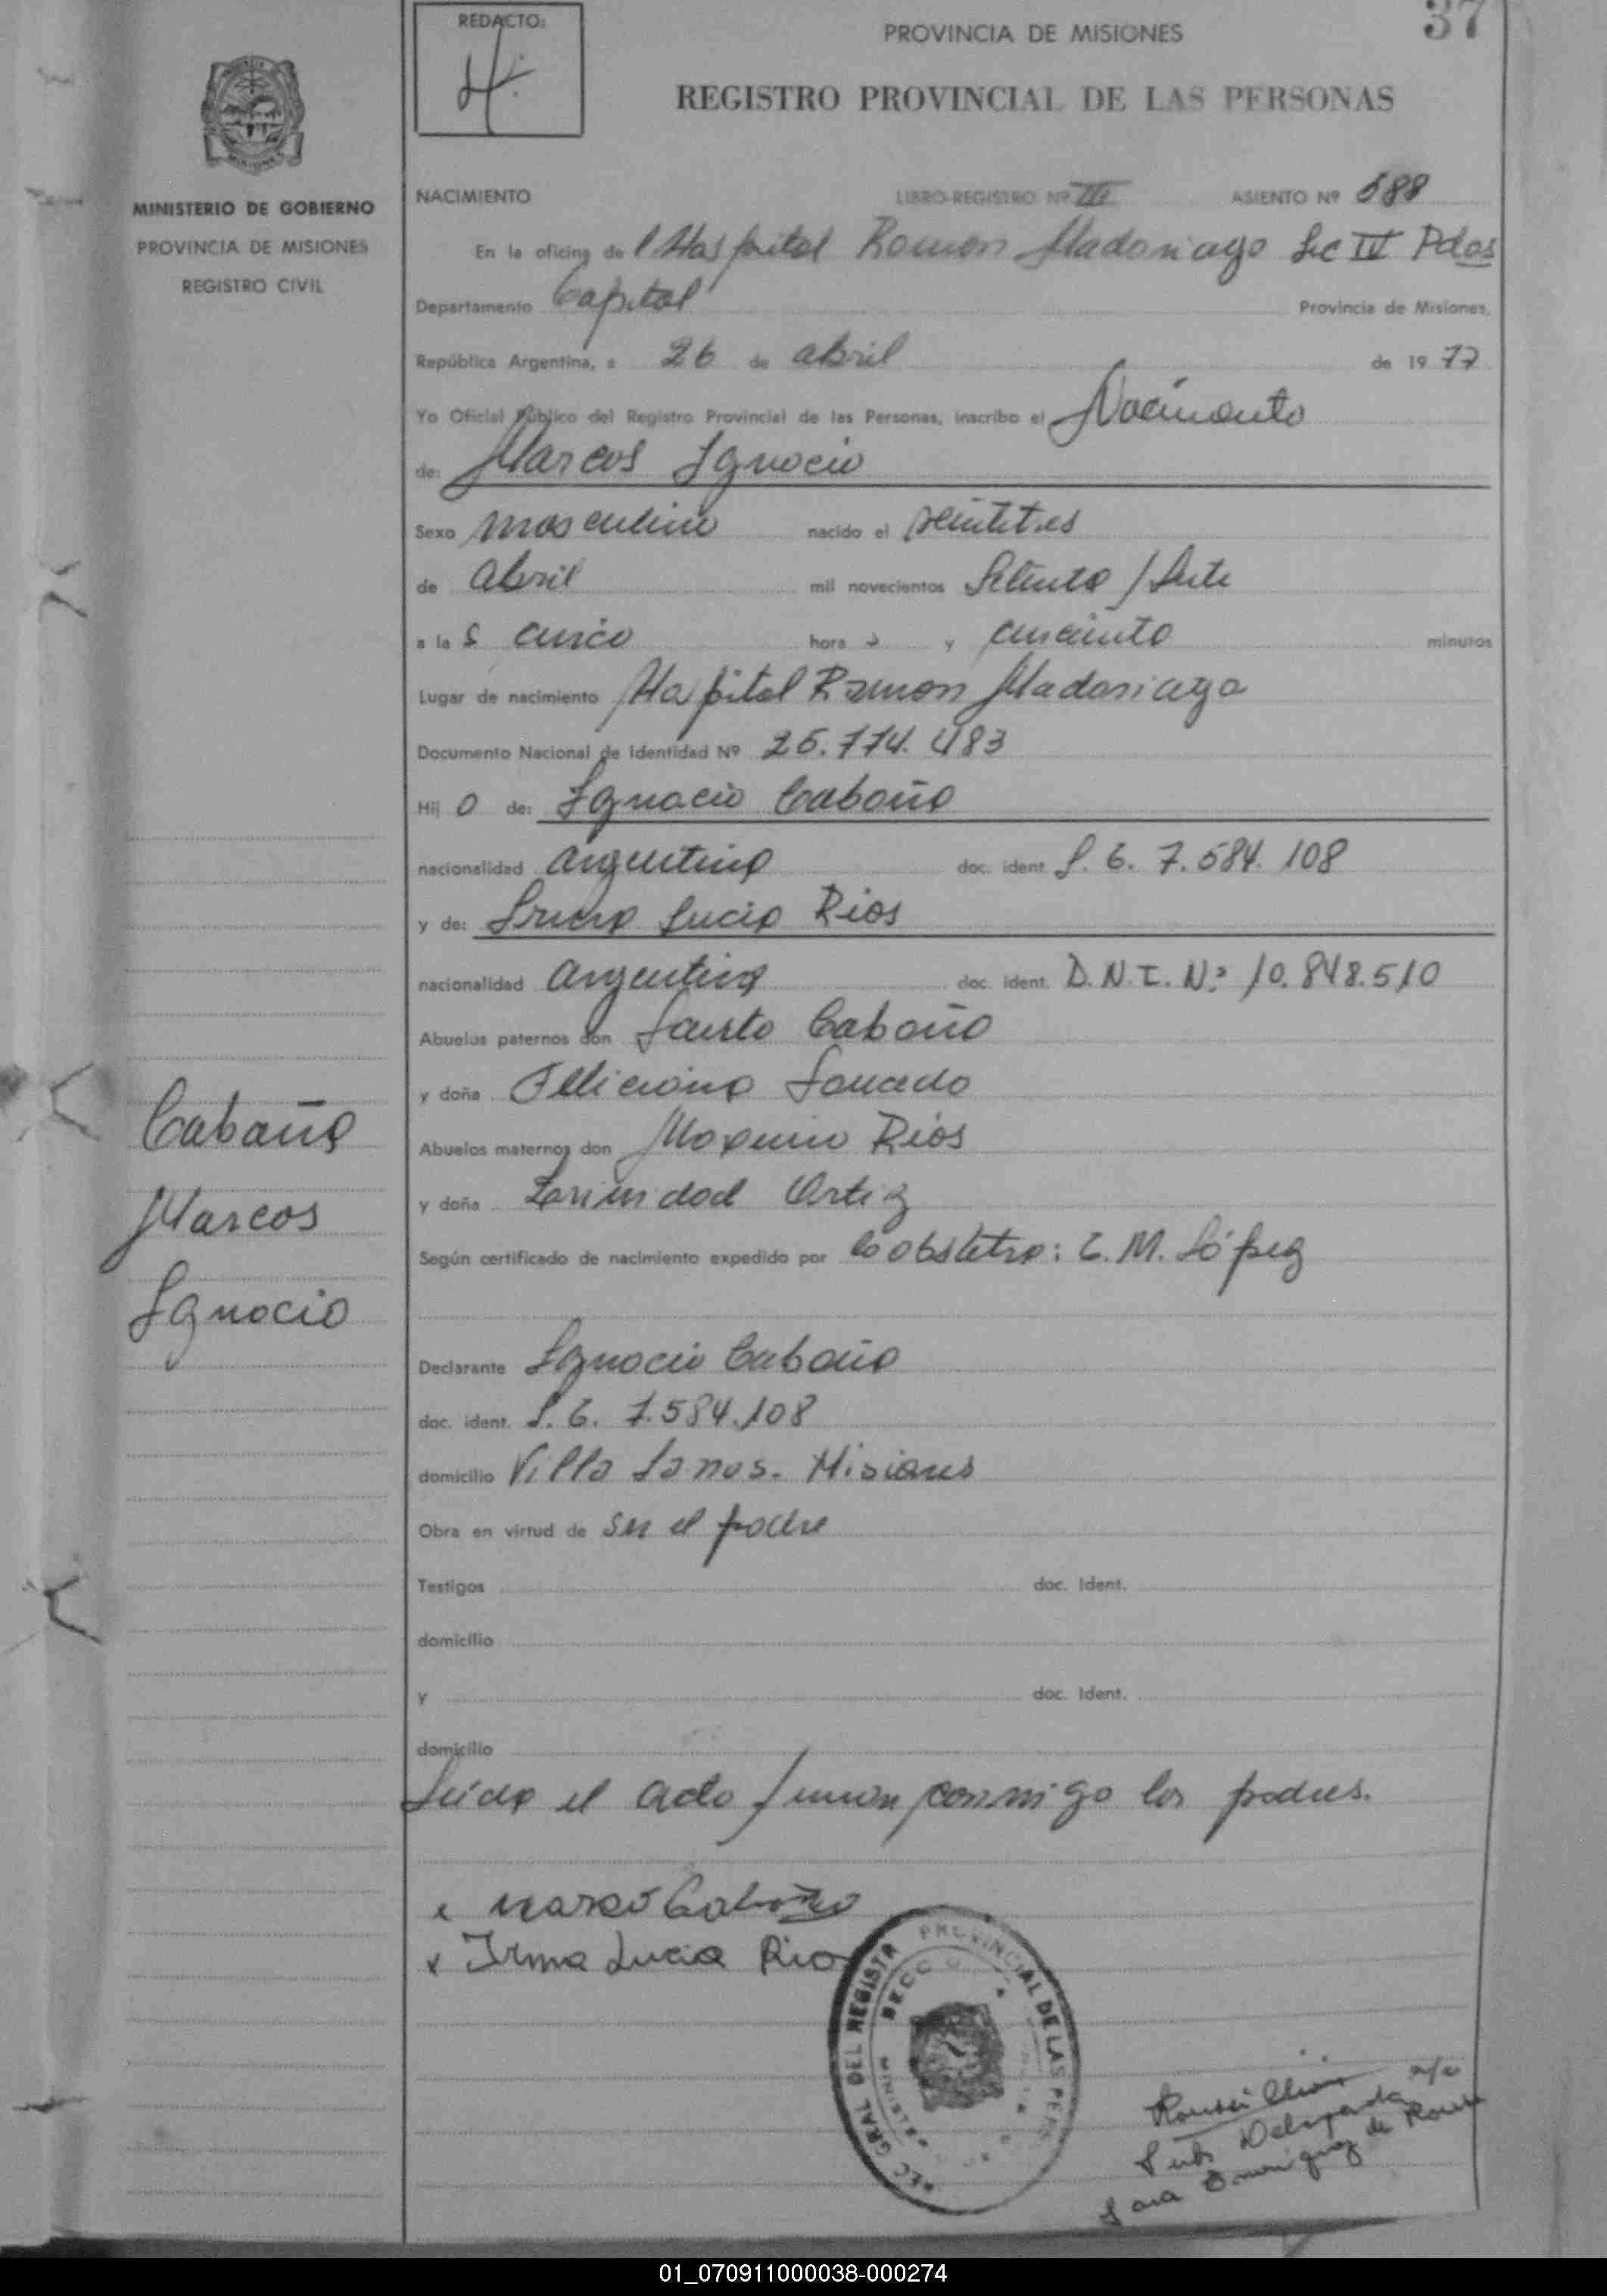 REDACTO:
PROVINCIA DE MISIONES
37
REGISTRO PROVINCIAL DE LAS PERSONAS
MINISTERIO DE GOBIERNO
PROVINCIA DE MISIONES
REGISTRO CIVIL
NACIMIENTO LIBRO-REGISTRO Nº III ASIENTO Nº 588
En la oficina de l Hospital Ramon Madariaga Sec IV Pdas
Departamento Capital Provincia de Misiones,
República Argentina, a 26 de abril de 19 77
Yo Oficial Público del Registro Provincial de las Personas, inscribo el Nacimiento
de: Marcos Ignacio
Sexo masculino nacido el veintitres
de abril mil novecientos setenta y siete
a la s cinco hora s y cincuenta minutos
Lugar de nacimiento Hospital Ramon Madariaga
Documento Nacional de Identidad Nº 25.774.483
Hij o de: Ignacio Cabaña
nacionalidad argentina doc. ident 7.584.108
y de: Irma Lucia Rios
nacionalidad argentina doc. ident. D.N.I. Nº 10.848.510
Abuelos paternos don Fausto Cabaña
y doña Feliciana
Abuelos maternos don Maximo Rios
y doña Ortiz
Según certificado de nacimiento expedido por la obstetra: C. M. López
Cabaña
Marcos
Ignacio
Declarante Ignacio Cabaña
doc. ident. 7.584.108
domicilio Villa Lanus. Misiones
Obra en virtud de ser el padre
Testigos doc. Ident.
domicilio
y doc. Ident.
domicilio
Leida el acta firman conmigo los padres.
x Cabaña
x Irma Lucia Rios
GRAL DEL REGISTRO PROVINCIAL DE LAS PERS
Sub Delegada a/c
01_070911000038-000274